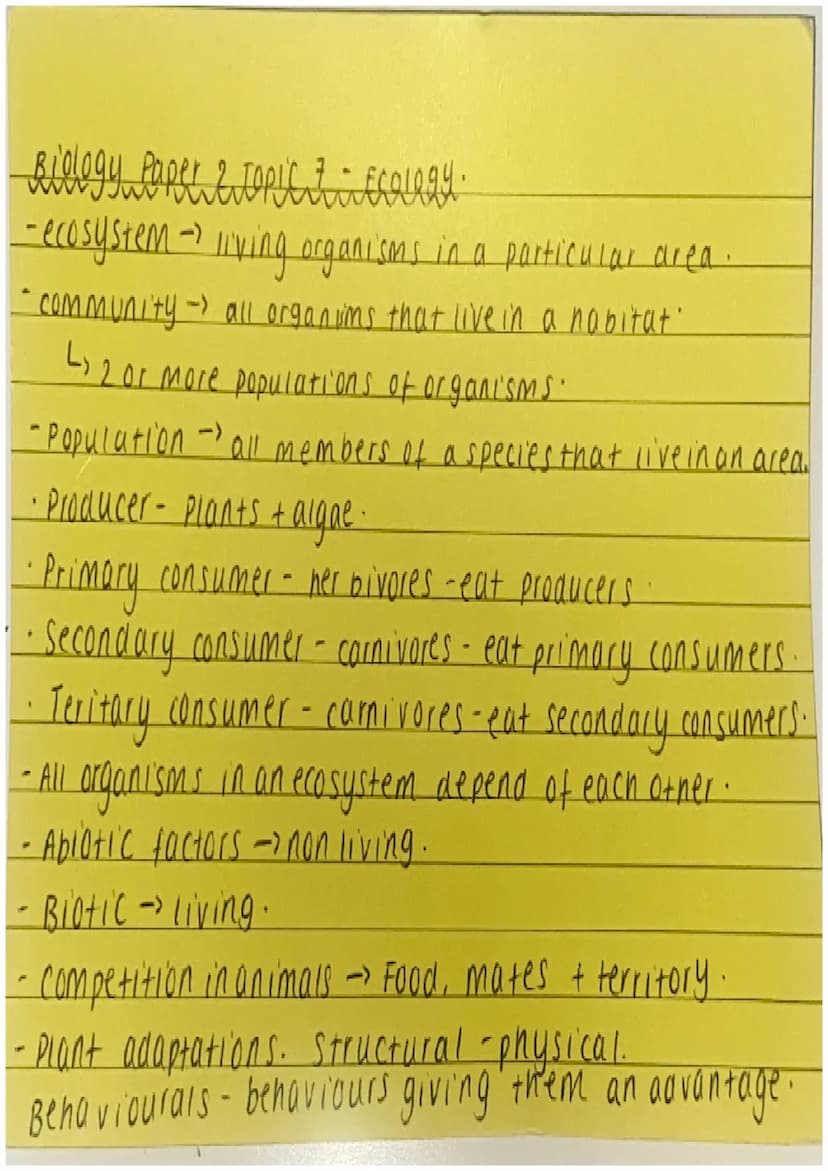 Biology Paper 2 Topic 7 - Ecology.
- ecosystem → living organisms in a particular area.
- community → all organisms that live in a habitat.
↳ 2 or more populations of organisms.
- Population → all members of a species that live in an area.
· Producer - plants + algae.
· Primary consumer - herbivores - eat producers.
· Secondary consumer - carnivores - eat primary consumers.
· Teritary consumer - carnivores - eat secondary consumers.
- All organisms in an ecosystem depend of each other.
- Abiotic factors → non living.
- Biotic → living.
- Competition in animals → Food, mates + territory.
- Plant adaptations. Structural - physical.
Behaviourals - behaviours giving them an advantage.